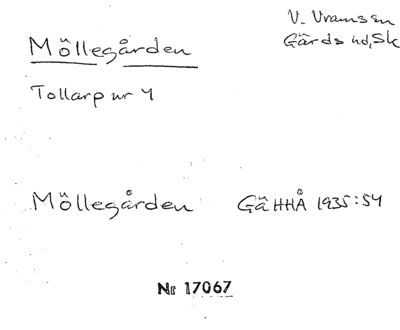 V. Vramsen
Gärds hd, Sk
Möllegården
Tollarp nr 4
Möllegården GäHHÅ 1935:54
Nr 17067